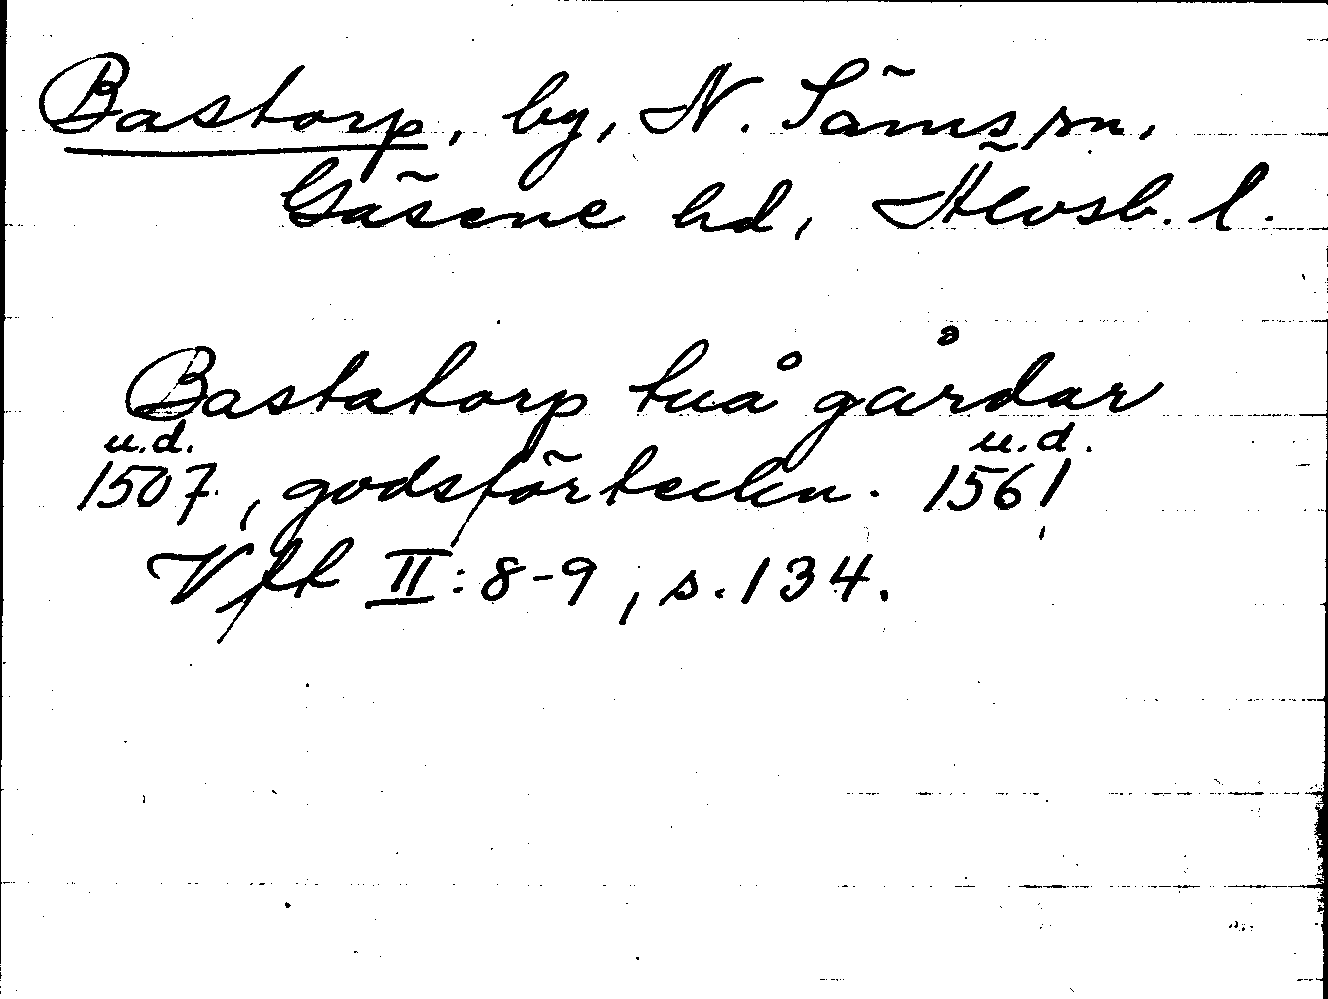 Bastorp, by, N. Säms sn,
Gäsene hd, Älvsb. l.
Bastatorp tuå gårdar
u.d. u.d.
1507, godsförteckn. 1561
Vfft II:8-9, s.134.